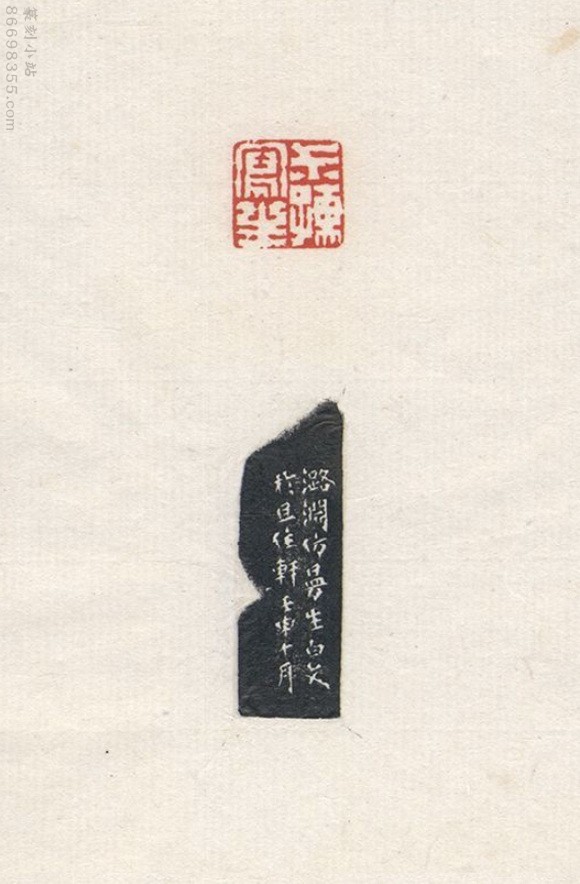 篆刻小站
86698355.com
潞淵仿曼生白文
於且住軒壬申十月